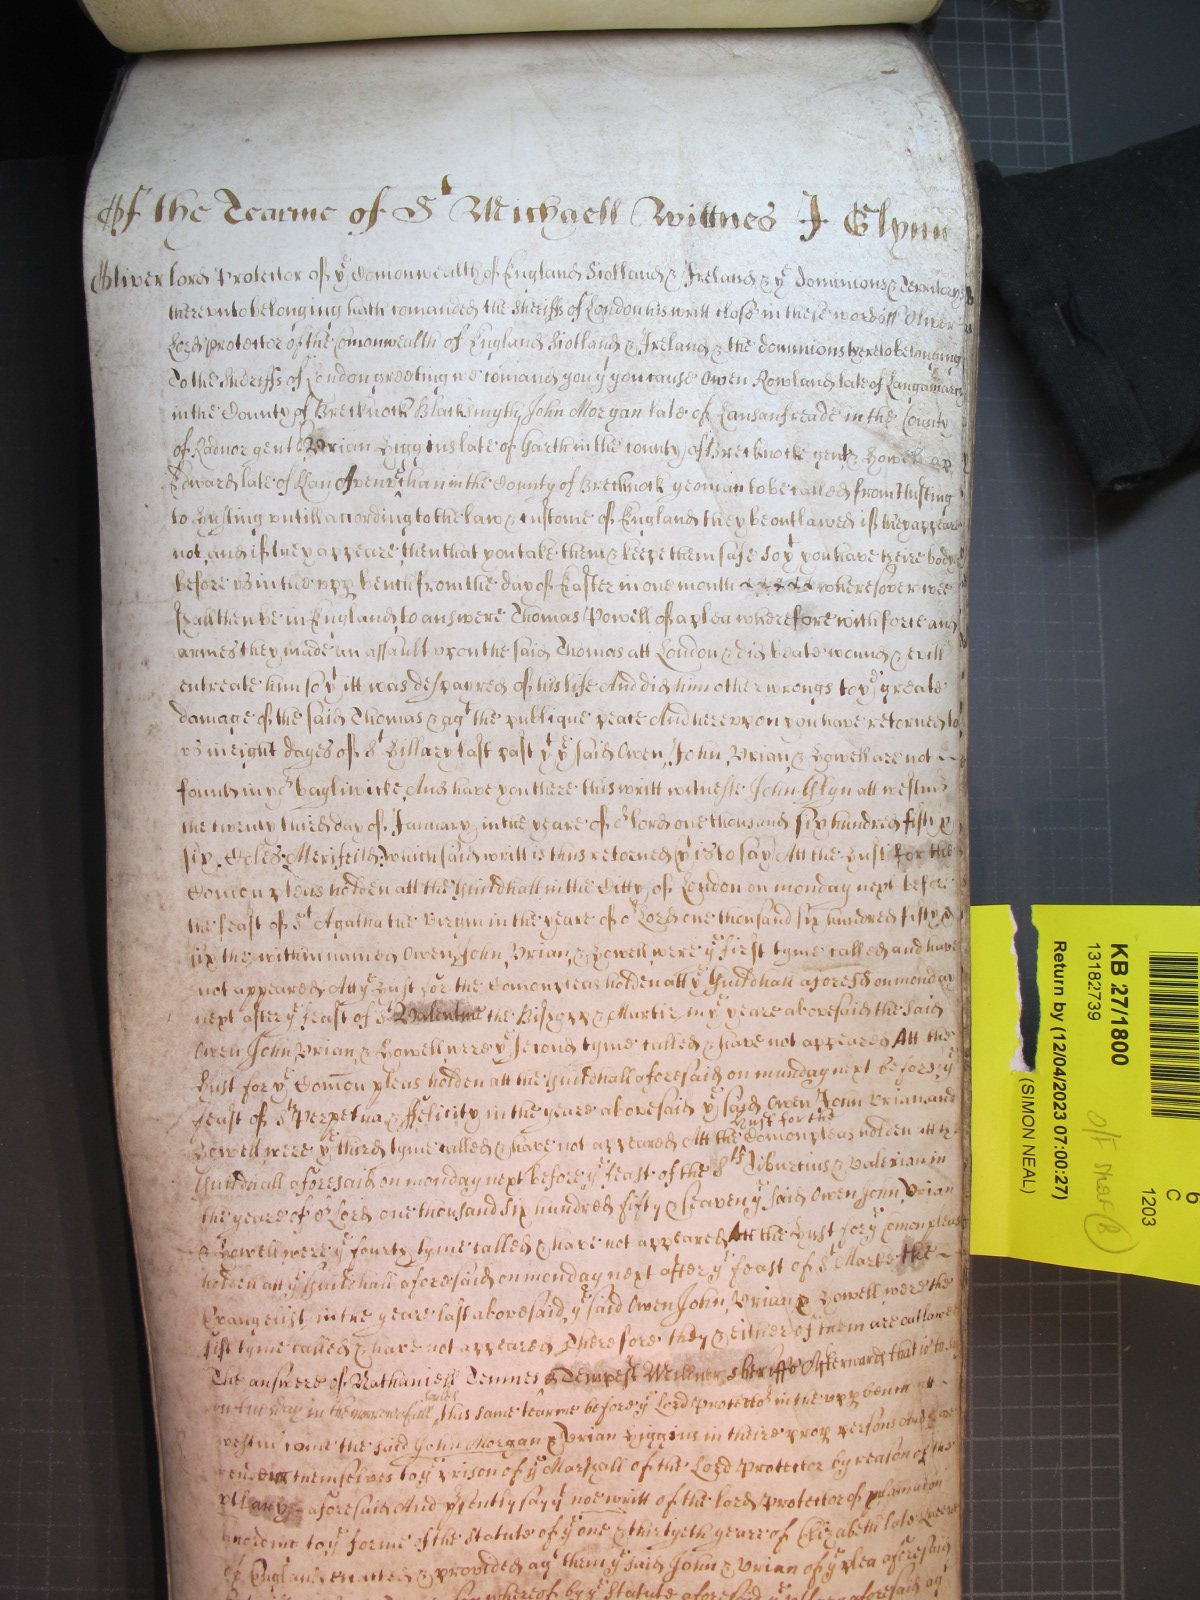 Of the Tearme of St Michaell Wittnes J Glynn
Oliver lord Protector of ye Comonwealth of England Scotland & Ireland & ye Dominions & Territorys
thereunto belonging hath comanded the Sheriffs of London his writt close in these words ss Oliver
Lord Protector of the Comonwealth of England Scotland & Ireland & the dominions thereto belonging
To the Sheriffs of London greeting we comand you yt you cause Owen Rowland late of
in the County of Brecknock Blacksmyth John Morgan late of Lansanfreade in the County
of Radnor gent Urian Higgins late of Garth in the county of Brecknocke gent & Howell ap
Edward late of in the County of Brecknock yeoman to be called from Husting
to Husting untill according to the law & custome of England they be outlawed if they appeare
not and if they appeare then that you take them & keepe them safe So yt you have theire bodyes
before us in the upp bench from the day of Easter in one month wheresoever wee
shall then be in England to answere Thomas Powell of a plea wherefore with force and
armes they made an assault upon the said Thomas att London & did beate wound & evill
entreate him so yt itt was despayred of his life And did him other wrongs to ye greate
damage of the said Thomas & agt the publique peace And hereupon you have retorned to
us in eight dayes of St Hillary last past yt ye said Owen, John, Urian, & Howell are not
found in yor bayliwicke, And have you there this writt witnesse John Glyn att westmr
the twenty third day of January in the yeare of or lord one thousand six hundred fifty &
six. Merifeild: which said writt is thus retorned (yt is to say) Att the Hust for the
Comon pleas holden att the Guildhall in the Citty of London on monday next before
the feast of St Agatha the Virgin in the yeare of or Lord one thousand six hundred fifty &
six the within named Owen, John, Urian, & Howell were ye first tyme called and have
not appeared, Att ye Hust for the Comon pleas holden att ye Guildhall aforesd on monday
next after ye feast of St Valentine the Bishopp & Martir in ye yeare abovesaid the said
Owen John, Urian & Howell were ye second tyme called & have not appeared Att the
Hust for ye Comon pleas holden att the Guildhall aforesaid on munday next before ye
feast of St Perpetua & Felicity in the yeare abovesaid ye said Owen John Urian and
Howell were ye third tyme called & have not appeared Att the Hust for the Comon pleas holden att ye
Guildhall aforesaid on monday next before ye feast of the Sts Tiburtius & Valerian in
the yeare of or Lord one thousand six hundred fifty & seaven ye said Owen John Urian
& Howell were ye fourth tyme called & have not appeared Att the Hust for ye Comon pleas
holden att ye Guildhall aforesaid on monday next after ye feast of St Marke the
Evangelist in the yeare last abovesaid, ye said Owen John, Urian & Howell were the
fift tyme called & have not appeared Therefore they & either of them are outlawed
The answere of Nathaniell Temmes & Tempest Millner, sheriffs Afterwards that is to say
on in the morrow of all soules this same tearme before ye Lord Protector in the upp bench att
westmr come the said John Morgan & Urian Higgins in theire prop persons and
render themselves to ye prison of ye Marshall of the Lord Protector by reason of the
aforesaid And psently say yt noe writt of the lord Protector of
according to ye forme of the Statute of ye one & thirtyeth yeare of Elizabeth late Queene
of England enacted & provided agt them ye said John & Urian of ye plea aforesaid
whereof by ye Statute aforesaid aforesaid agt
KB 27/1800
13182739
Return by (12/04/2023 07:00:27)
(SIMON NEAL)
6
C
1203